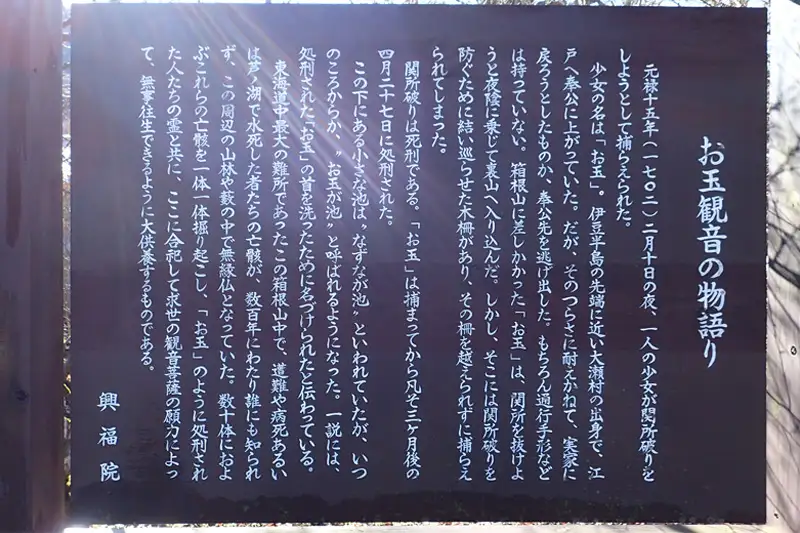 お玉観音の物語り
元禄十五年（一七〇二）二月十日の夜、一人の少女が関所破りを
しようとして捕らえられた。
少女の名は「お玉」。伊豆半島の先端に近い大瀬村の出身で、江
戸へ奉公に上がっていた。だが、そのつらさに耐えかねて、実家に
戻ろうとしたものか、奉公先を逃げ出した。もちろん通行手形など
は持っていない。箱根山に差しかかった「お玉」は、関所を抜けよ
うと夜陰に乗じて裏山へ入り込んだ。しかし、そこには関所破りを
防ぐために結い巡らせた木柵があり、その柵を越えられずに捕らえ
られてしまった。
関所破りは死刑である。「お玉」は捕まってから凡そ三ヶ月後の
四月二十七日に処刑された。
この下にある小さな池は〝なずなが池〟といわれていたが、いつ
のころからか、〝お玉が池〟と呼ばれるようになった。一説には、
処刑された「お玉」の首を洗ったために名づけられたと伝わっている。
東海道中最大の難所であったこの箱根山中で、遭難や病死あるい
は芦ノ湖で水死した者たちの亡骸が、数百年にわたり誰にも知られ
ず、この周辺の山林や藪の中で無縁仏となっていた。数十体におよ
ぶこれらの亡骸を一体一体掘り起こし、「お玉」のように処刑され
た人たちの霊と共に、ここに合祀して求世の観音菩薩の願力によっ
て、無事往生できるように大供養するものである。
興福院